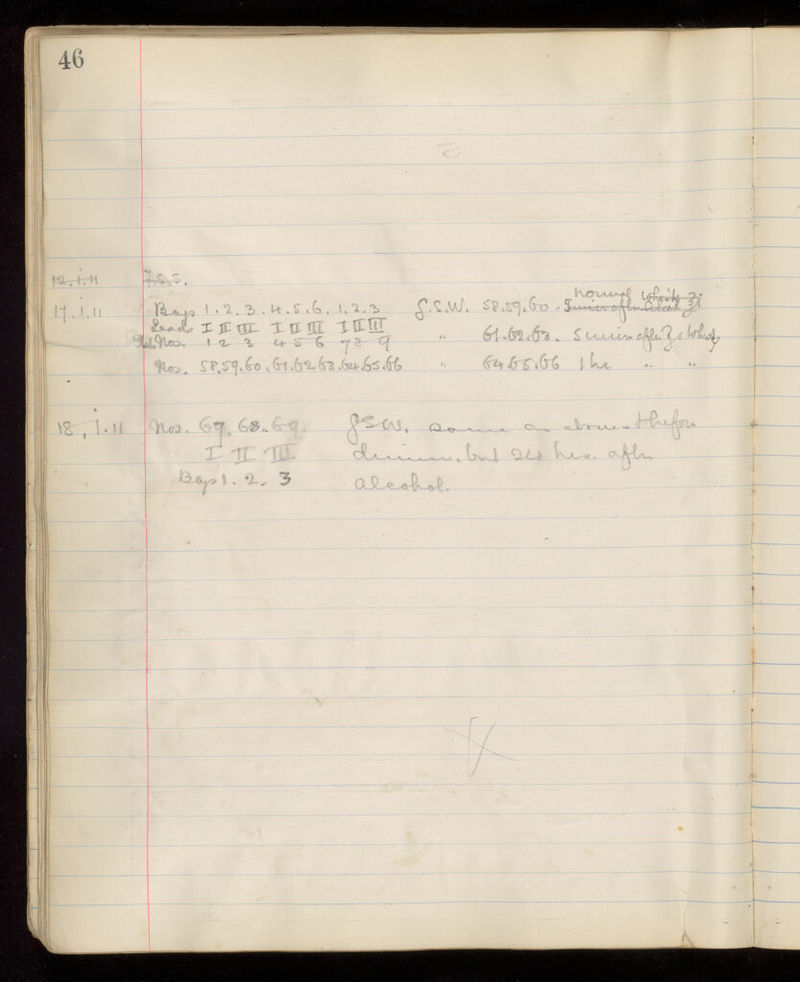 46
12.i.11 J.S.S.
17.i.11 Bags 1.2.3.4.5.6.1.2.3 J.S.W. 58.59.60. normal 5 mins after
Leads I II III I II III I II III
Nos. 1 2 3 4 5 6 7 8 9 " 61.62.63. 5 mins after ℥i Whisky
Nos. 58.59.60.61.62.63.64.65.66 " 64.65.66 1 hr " "
18.i.11 Nos. 67. 68. 69. J.S.W. same as above - before
I II III dinner, but 24 hrs. after
Bags 1. 2. 3 alcohol.